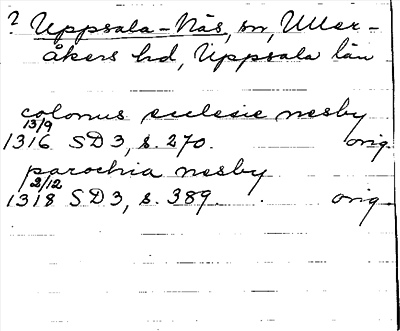 ? Uppsala-Näs, sn, Uller-
åkers hd, Uppsala län
colonus ecclesie nesby
13/9
1316 SD 3, s. 270. orig.
parochia nesby
2/12
1318 SD 3, s. 389. orig.